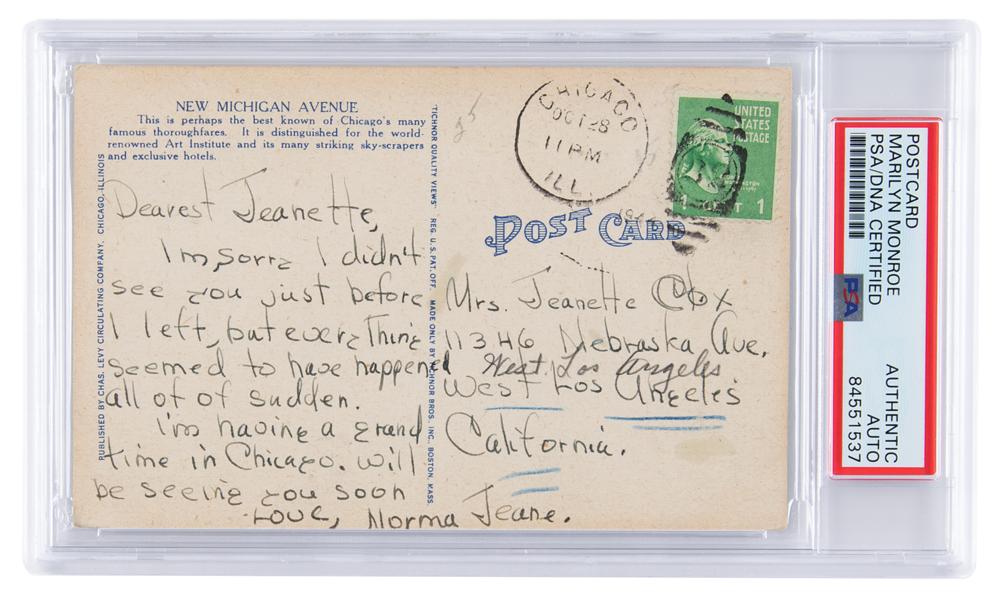 NEW MICHIGAN AVENUE
This is perhaps the best known of Chicago's many
famous thoroughfares. It is distinguished for the world-
renowned Art Institute and its many striking sky-scrapers
and exclusive hotels.
PUBLISHED BY CHAS. LEVY CIRCULATING COMPANY, CHICAGO, ILLINOIS
Dearest Jeanette,
I'm sorry I didn't
see you just before
I left, but everything
seemed to have happened
all of of sudden.
I'm having a grand
time in Chicago. Will
be seeing you soon
Love, Norma Jeane.
"TICHNOR QUALITY VIEWS" REG. U. S. PAT. OFF. MADE ONLY BY TICHNOR BROS., INC., BOSTON, MASS.
CHICAGO
OCT 28
11 PM
ILL.
UNITED
STATES
POSTAGE
1
POST CARD
Mrs. Jeanette Cox
11346 Nebraska Ave.
West Los Angeles
West Los Angeles
California.
POSTCARD
MARILYN MONROE
PSA/DNA CERTIFIED
PSA
AUTHENTIC
AUTO
84551537